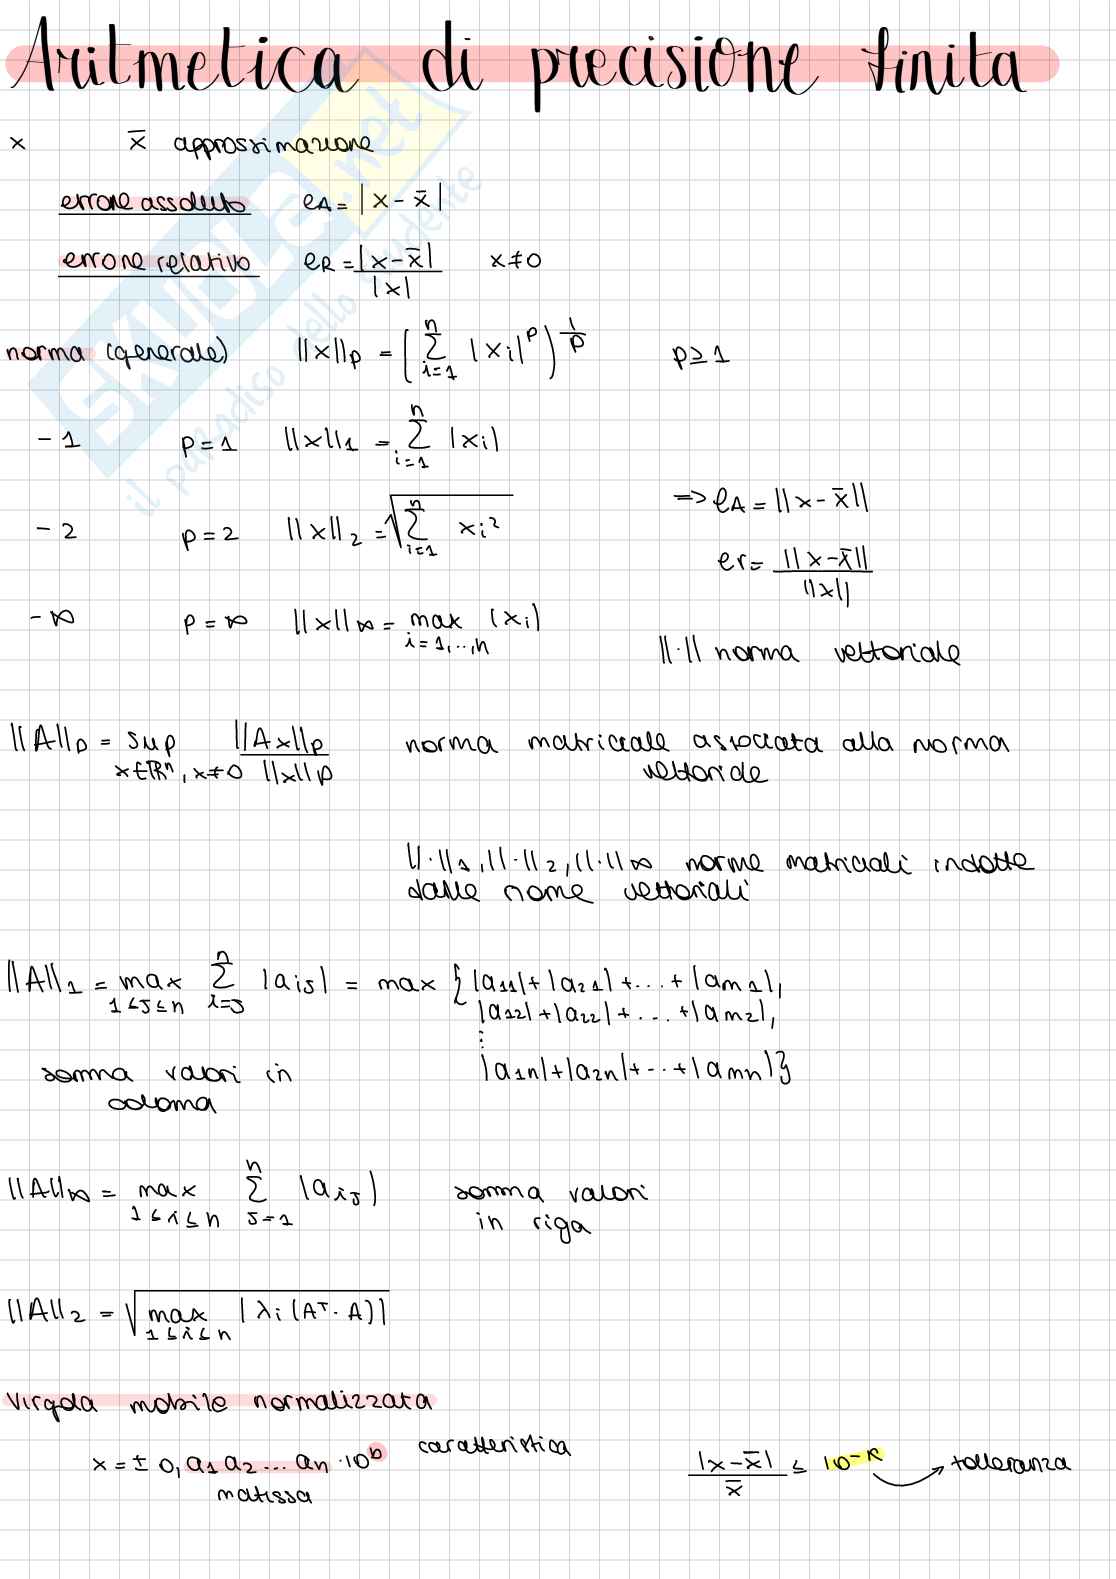 Aritmetica di precisione finita
x x̄ approssimazione
errore assoluto eA = |x - x̄|
errore relativo eR = |x - x̄| / |x| x ≠ 0
norma (generale) ||x||p = (∑_{i=1}^{n} |xi|^p)^{1/p} p ≥ 1
- 1 p = 1 ||x||1 = ∑_{i=1}^{n} |xi|
- 2 p = 2 ||x||2 = √(∑_{i=1}^{n} xi²)
=> eA = ||x - x̄||
er = ||x - x̄|| / ||x||
- ∞ p = ∞ ||x||∞ = max_{i=1,..,n} |xi|
||·|| norma vettoriale
||A||p = sup_{x∈ℝⁿ, x≠0} ||Ax||p / ||x||p norma matriciale associata alla norma
vettoriale
||·||1, ||·||2, ||·||∞ norme matriciali indotte
dalle norme vettoriali
||A||1 = max_{1≤j≤n} ∑_{i=j}^{n} |aij| = max {|a11|+|a21|+...+|am1|,
|a12|+|a22|+...+|am2|,
⋮
somma valori in |a1n|+|a2n|+...+|amn|}
colonna
||A||∞ = max_{1≤i≤n} ∑_{j=1}^{n} |aij| somma valori
in riga
||A||2 = √(max_{1≤i≤n} |λi(Aᵀ·A)|)
Virgola mobile normalizzata
x = ± 0, a1 a2 ... an · 10^b caratteristica |x - x̄| / x̄ ≤ 10^{-k} → tolleranza
matissa
SKUOLA.net
il paradiso dello studente